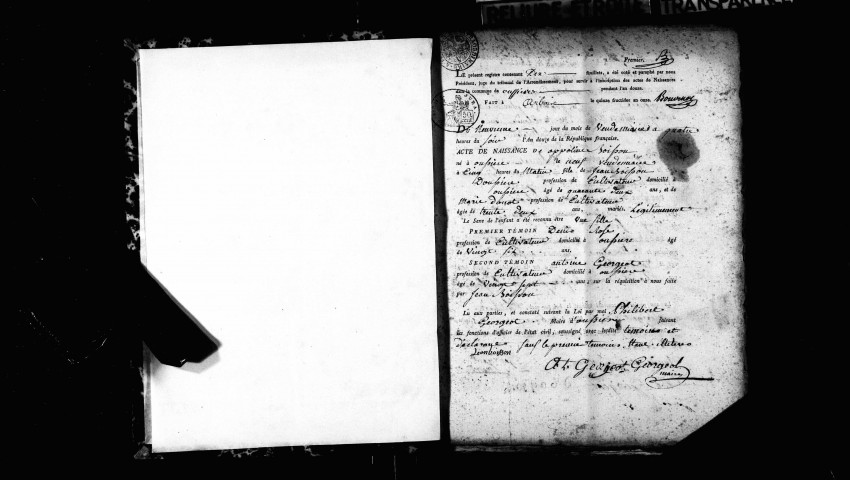 RELIURE ETROITE
TRANSPARENCE
Premier.
LE présent registre contenant Dix feuillets, a été coté et paraphé par nous
Président, juge du tribunal de l'Arrondissement, pour servir à l'inscription des actes de Naissance
de la commune de oussiere pendant l'an douze.
FAIT à Arbois le quinze fructidor an onze. Bouvenot
DU Neuvieme jour du mois de Vendemiaire a quatre
heures du soir l'An douze de la République française.
ACTE DE NAISSANCE de appoline Voisson
né à oussiere le neuf Vendemiaire
à Cinq heures du Matin fille de jean Voisson
Doussiere profession de Cultivateur domicilié à
oussiere âgé de quarante deux ans, et de
Marie profession de Cultivateur
âgée de trente deux ans, mariés. Legitimement
Le Sexe de l'enfant a été reconnu être une fille
PREMIER TÉMOIN Denis Rose
profession de Cultivateur domicilié à oussiere âgé
de Vingt six ans.
SECOND TÉMOIN antoine Georgeot
profession de Cultivateur domicilié à oussiere
âgé de Vingt sept ans; sur la réquisition à nous faite
par jean Voisson
Lu aux parties, et constaté suivant la Loi par moi Philibert
Georgeot Maire d'oussiere faisant
les fonctions d'officier de l'état civil, soussigné avec lesdits temoins et
Declarans sauf le premier temoins
A. Georgeot Georgeot
maire